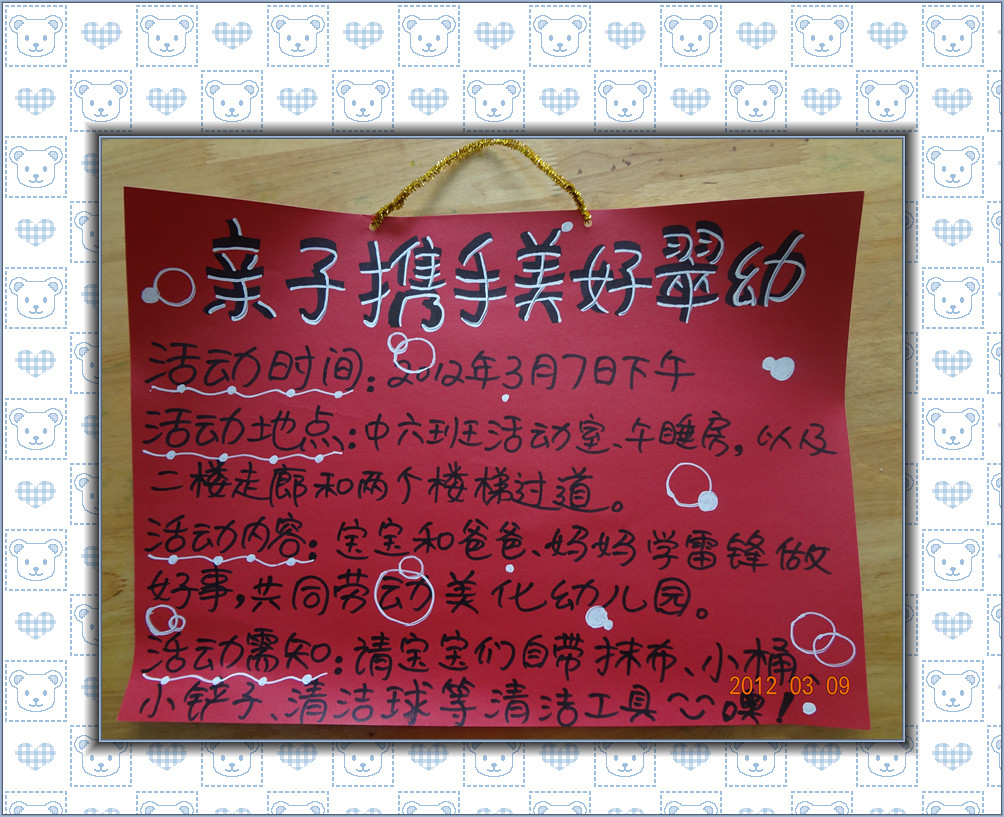 亲子携手美好翠幼
活动时间:2012年3月7日下午
活动地点:中六班活动室、午睡房,以及
二楼走廊和两个楼梯过道。
活动内容:宝宝和爸爸、妈妈学雷锋做
好事,共同劳动美化幼儿园。
活动需知:请宝宝们自带抹布、小桶、
小铲子、清洁球等清洁工具噢!
2012 03 09